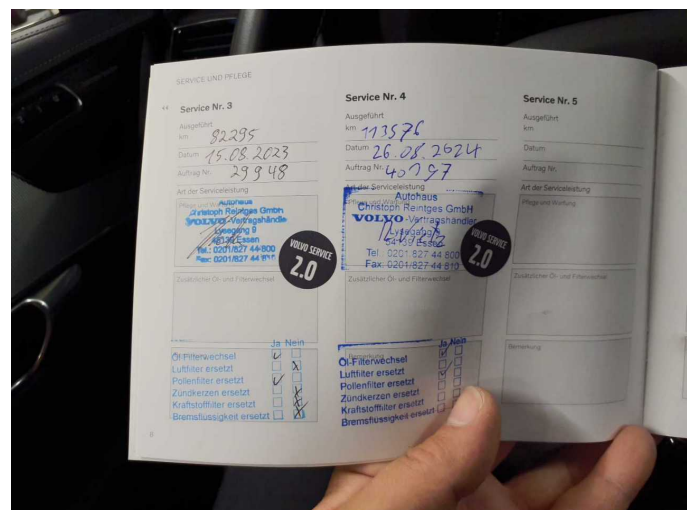 SERVICE UND PFLEGE
Service Nr. 3
Ausgeführt
km 82295
Datum 15.08.2023
Auftrag Nr. 29948
Art der Serviceleistung
Pflege und Wartung
Autohaus
Christoph Reintges GmbH
VOLVO-Vertragshändle
Lysegang 9
45139 Essen
Tel.: 0201/827 44-800
Fax: 0201/827 44 810
VOLVO SERVICE
2.0
Zusätzlicher Öl- und Filterwechsel
Ja Nein
Öl-Filterwechsel
Luftfilter ersetzt
Pollenfilter ersetzt
Zündkerzen ersetzt
Kraftstofffilter ersetzt
Bremsflüssigkeit ersetzt
8
Service Nr. 4
Ausgeführt
km 113576
Datum 26.08.2024
Auftrag Nr. 40797
Art der Serviceleistung
Pflege und Wartung
Autohaus
Christoph Reintges GmbH
VOLVO-Vertragshändler
Lysegang
Essen
Tel.: 0201/827 44-800
Fax: 0201/827 44 810
VOLVO SERVICE
2.0
Zusätzlicher Öl- und Filterwechsel
Bemerkung
Ja Nein
Öl-Filterwechsel
Luftfilter ersetzt
Pollenfilter ersetzt
Zündkerzen ersetzt
Kraftstofffilter ersetzt
Bremsflüssigkeit ersetzt
Service Nr. 5
Ausgeführt
km
Datum
Auftrag Nr.
Art der Serviceleistung
Pflege und Wartung
Zusätzlicher Öl- und Filterwechsel
Bemerkung